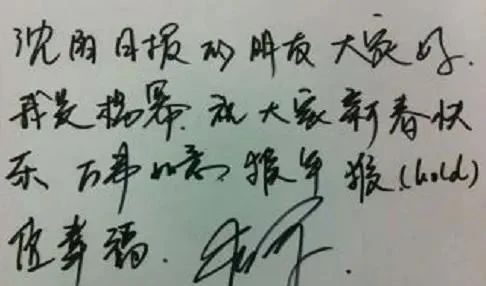 沈阳日报的朋友大家好.
我是杨幂.祝大家新春快
乐 万事如意,猴年猴(hold)
住幸福.